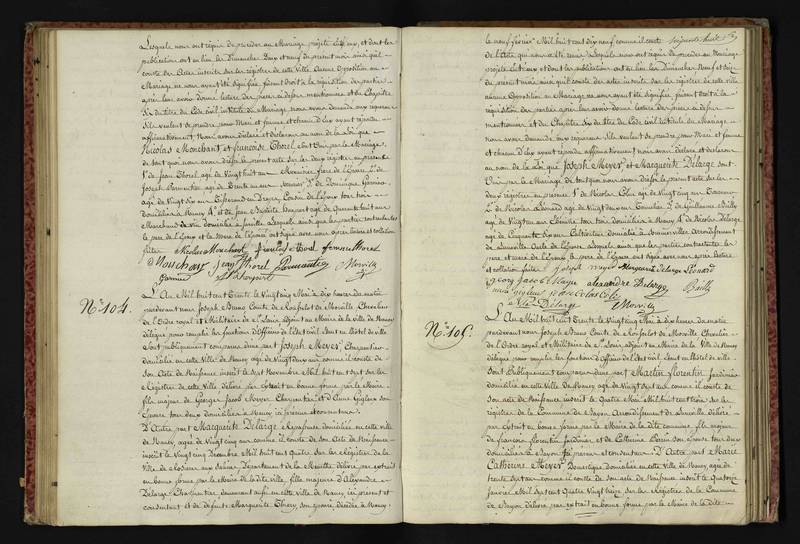 Lesquels nous ont requis de procéder au Mariage projeté entr'eux, et dont les
publications ont eu lieu les Dimanches Deux et neuf du présent mois ainsi qu'il
conste des Actes inscrits sur les registres de cette Ville. Aucune Opposition au
Mariage ne nous ayant été signifiée, faisant droit à la réquisition des parties
après leur avoir donné lecture des pièces ci-dessus mentionnées et du Chapitre
Six du titre du Code civil intitulé du Mariage, nous avons demandé aux requérans
s'ils veulent se prendre pour Mari et femme et chacun d'eux ayant répondu
affirmativement, nous avons déclaré et déclarons au nom de la Loi que
Nicolas Monchant et françoise Thorel sont Unis par le Mariage,
de tout quoi nous avons dressé le présent acte sur les deux registres en présence
1° de Jean Thorel âgé de Vingt huit ans
Joseph Parmentier âgé de Trente un ans 3° de Dominique
âgé de Vingt six ans
domiciliés à Nancy 4° et de Jean Baptiste âgé de Quarante huit ans
Marchand de Vin domicilié en cette ville, Lesquels ainsi que les parties contractantes
le père de l'Epoux et la Mère de l'Epouse ont signé avec nous après lecture et collation
faites Nicolas Monchant
Monchant Jean Thorel Parmentier
Morville
N° 104.
L'An Mil huit cent Trente le Vingt cinq Mai à dix heures du matin
pardevant nous Joseph Bruno Comte de Morville Chevalier
de l'Ordre royal et Militaire de St Louis, adjoint au Maire de la Ville de Nancy
délégué pour remplir les fonctions d'Officier de l'Etat civil. Sont en l'hôtel de ville
Sont publiquement comparus d'une part Joseph Meyer, Charpentier
domicilié en cette Ville de Nancy, âgé de Vingt deux ans comme il conste de
son Acte de Naissance inscrit le Sept Novembre Mil huit cent sept sur les
Registres de cette Ville délivré par extrait en bonne forme par le Maire
fils majeur de Georges Jacob Meyer Charpentier et d'Anne Gigleux son
Epouse tous deux domiciliés à Nancy ici présens et consentans.
D'Autre part Marguerite Delarge Repasseuse domiciliée en cette ville
de Nancy, âgée de Vingt cinq ans comme il conste de son Acte de Naissance
inscrit le Vingt cinq Décembre Mil huit cent Quatre sur les Registres de la
Ville de Rosières aux Salines Département de la Meurthe délivré par extrait
en bonne forme par le Maire de ladite ville, fille majeure d'Alexandre
Delarge Charpentier demeurant aussi en cette Ville de Nancy ici présent et
consentant et de défunte Marguerite Thiery, son épouse, décédée à Nancy
le neuf février Mil huit cent dix neuf comme il conste
de l'Acte
projeté entr'eux et dont les publications ont eu lieu les Dimanches Neuf et Seize
du présent mois ainsi qu'il conste des actes inscrits sur les registres de cette ville
Aucune Opposition au Mariage ne nous ayant été signifiée, faisant droit à la
réquisition des parties après leur avoir donné lecture des pièces ci-dessus
mentionnées et du Chapitre Six du titre du Code civil intitulé du Mariage
nous avons demandé aux requérans s'ils veulent se prendre pour Mari et femme
et chacun d'eux ayant répondu affirmativement, nous avons déclaré et déclarons
au nom de la Loi que Joseph Meyer et Marguerite Delarge sont
Unis par le Mariage de tout quoi nous avons dressé le présent acte sur les
deux registres en présence 1° de Nicolas Colas âgé de Vingt cinq ans
2° de Léonard âgé de Vingt deux ans 3° de Guillaume Bailly
âgé de Vingt un ans tous trois domiciliés à Nancy 4° de Nicolas Delarge
âgé de Cinquante Six ans Cultivateur domicilié à arrondissement
de Lunéville Oncle de l'Epouse Lesquels ainsi que les parties contractantes les
père et mère de l'Epoux, le père de l'Epouse ont signé avec nous après lecture
et collation faites. Joseph Meyer Margueritte delarge Léonard
Georg Jacob Mayer alexandre Delarge Bailly
Nicolas Colas
N Delarge Morville
N° 105.
L'An Mil huit cent Trente le Vingt cinq Mai à dix heures du matin
pardevant nous Joseph Bruno Comte de Morville Chevalier
de l'Ordre royal et Militaire de St Louis, adjoint au Maire de la Ville de Nancy
délégué pour remplir les fonctions d'Officier de l'Etat civil. Sont en l'hôtel de ville
Sont Publiquement comparus d'une part Martin florentin Jardinier
domicilié en cette Ville de Nancy âgé de Vingt Sept ans comme il conste de
son acte de Naissance inscrit le Quatre Mai Mil huit cent trois sur les
registres de la Commune de Bayon, Arrondissement de Lunéville délivré
par extrait en bonne forme par le Maire de ladite commune, fils majeur
de françois florentin Jardinier et de Catherine son Epouse tous deux
domiciliés à Bayon ici présens et consentans. D'Autre part Marie
Catherine Meyer Domestique domiciliée en cette Ville de Nancy, âgée de
trente Sept ans comme il conste de son acte de Naissance inscrit le Quatorze
Janvier Mil Sept cent Quatre Vingt treize sur les Registres de la Commune
de Bayon délivré par extrait en bonne forme par le Maire de ladite